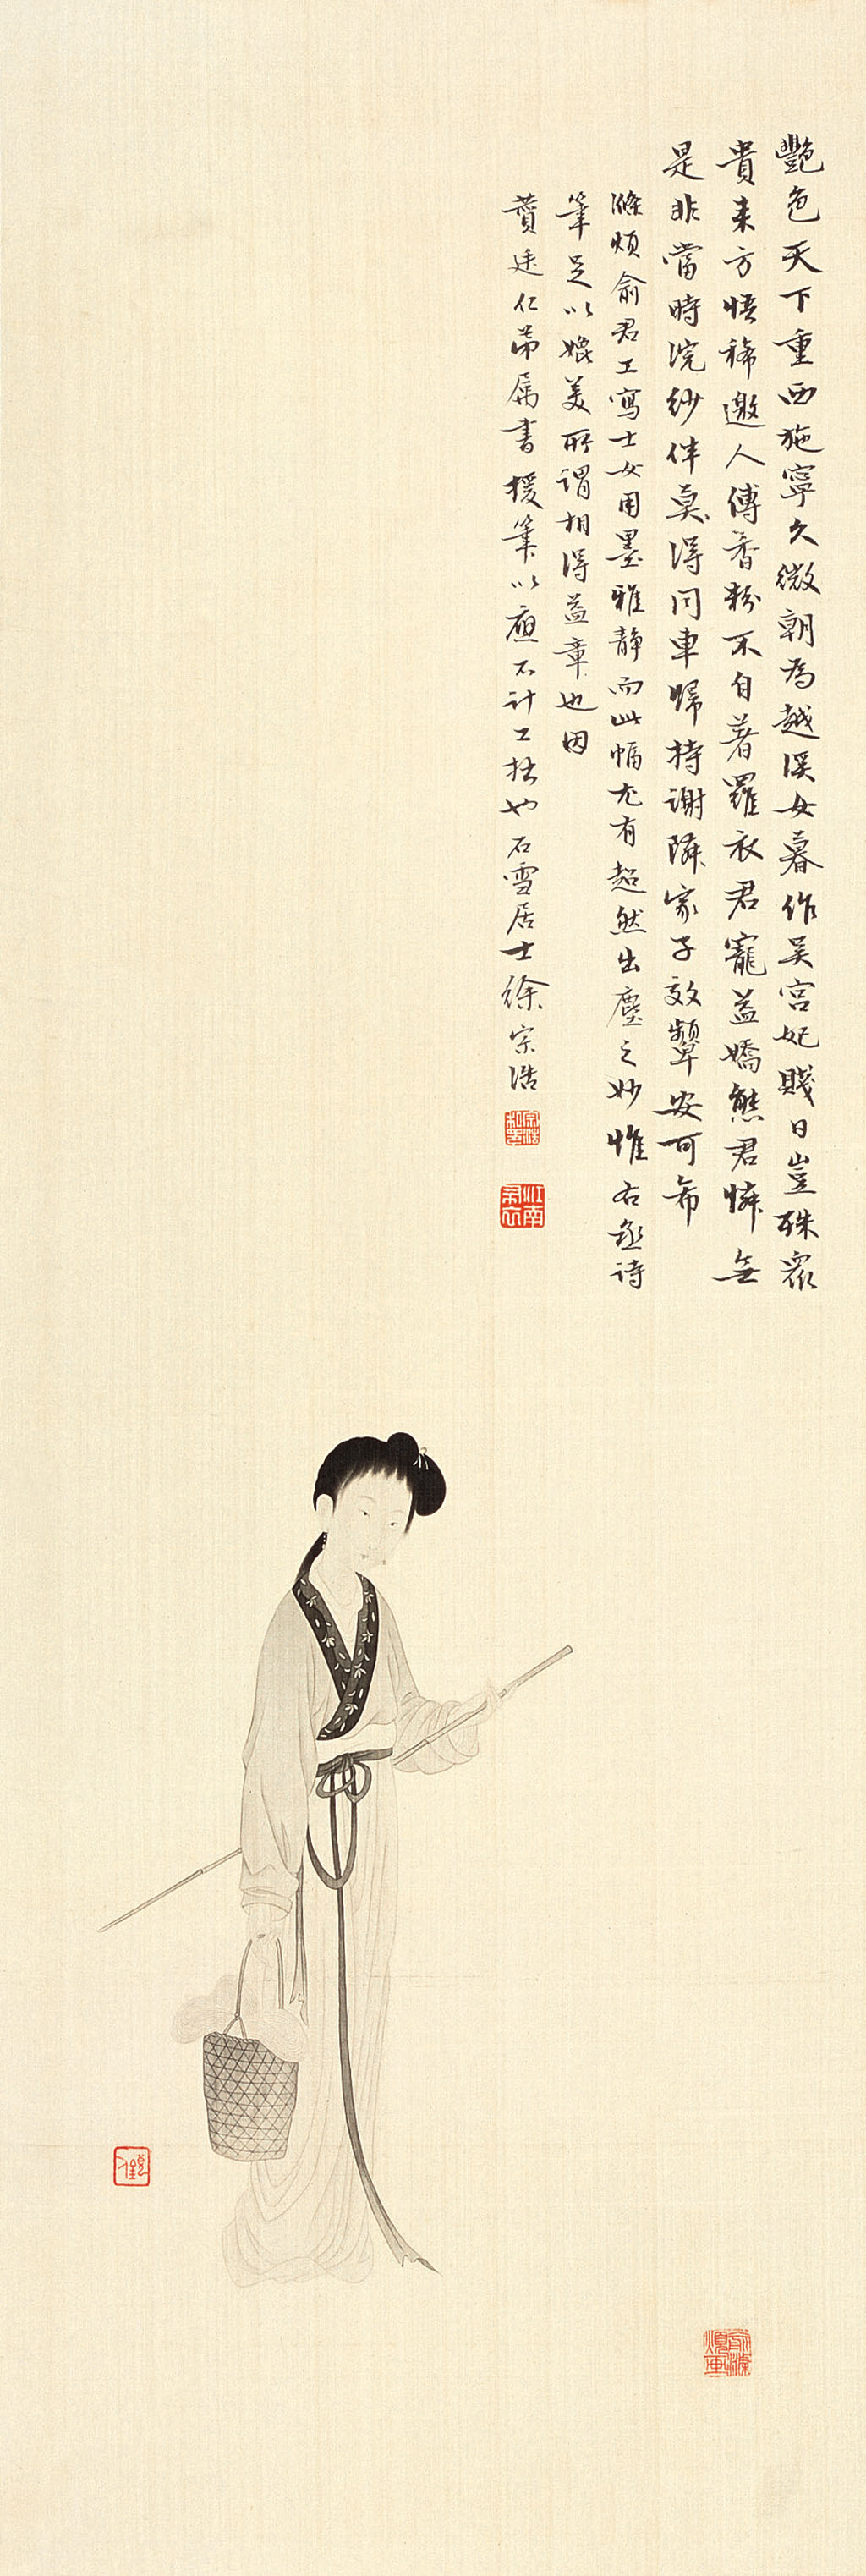 艷色天下重西施寧久微朝為越溪女暮作吴宫妃賤日豈殊眾
貴来方悟稀邀人傅香粉不自著羅衣君寵益嬌態君憐無
是非當時浣紗伴莫得同車歸持謝隣家子效顰安可希
滌煩俞君工寫士女用墨雅静而此幅尤有超然出塵之妙惟右丞詩
筆足以媲美所謂相得益章也因
贊廷仁弟属書援筆以應不計工拙也石雪居士徐宗浩